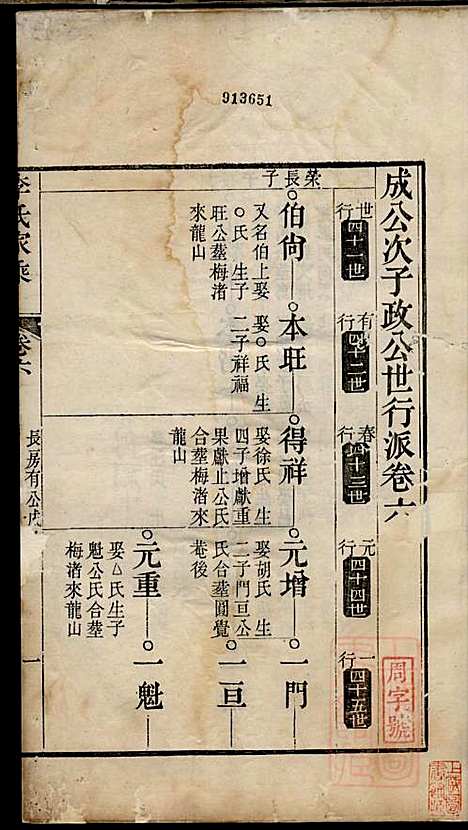 913651
成公次子政公世行派卷六
世行 四十一世
有行 四十二世
春行 四十三世
元行 四十四世
一行 四十五世
榮長子
伯尙
又名伯上娶
○氏 生子
旺公塟梅渚
來龍山
本旺
娶○氏 生
二子祥福
得祥
娶徐氏 生
四子增獻重
果獻止公氏
合塟梅渚來
龍山
元增
娶胡氏 生
二子門亘公
氏合塟圓覺
菴後
一門
一亘
元重
娶△氏生子
魁公氏合塟
梅渚來龍山
一魁
李氏家乘
卷六
長房有公戊
一
周字號